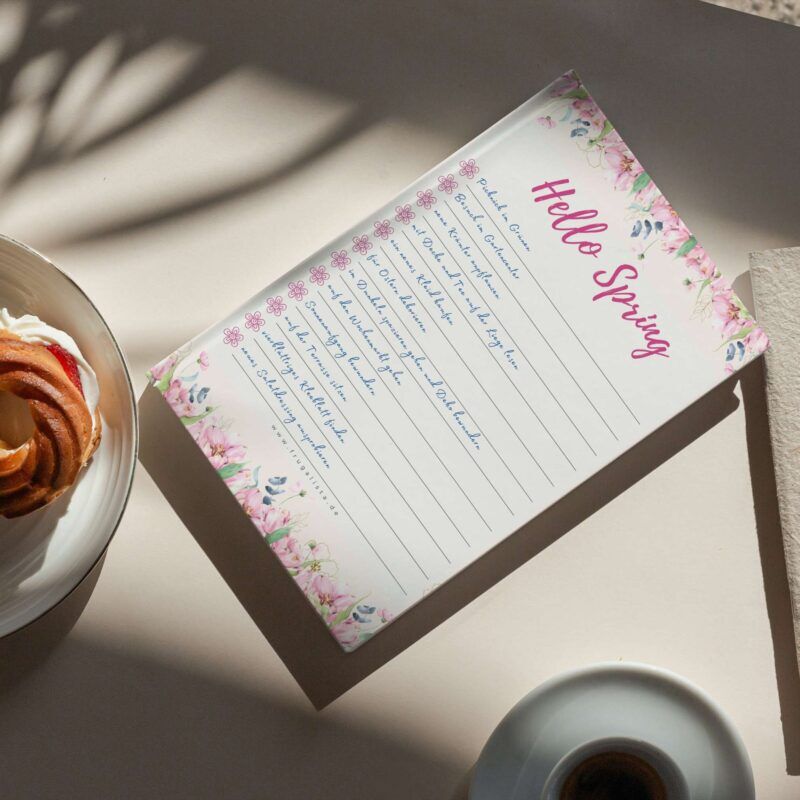 Hello Spring
Picknick im Grünen
Besuch im Gartencenter
neue Kräuter anpflanzen
mit Decke und Tee auf der Liege lesen
ein neues Kleid kaufen
für Ostern dekorieren
im Dunkeln spazieren gehen und Deko bewundern
auf den Wochenmarkt gehen
Sonnenaufgang bewundern
auf der Terrasse sitzen
vierblättriges Kleeblatt finden
neues Salatdressing ausprobieren
www.frugalista.de